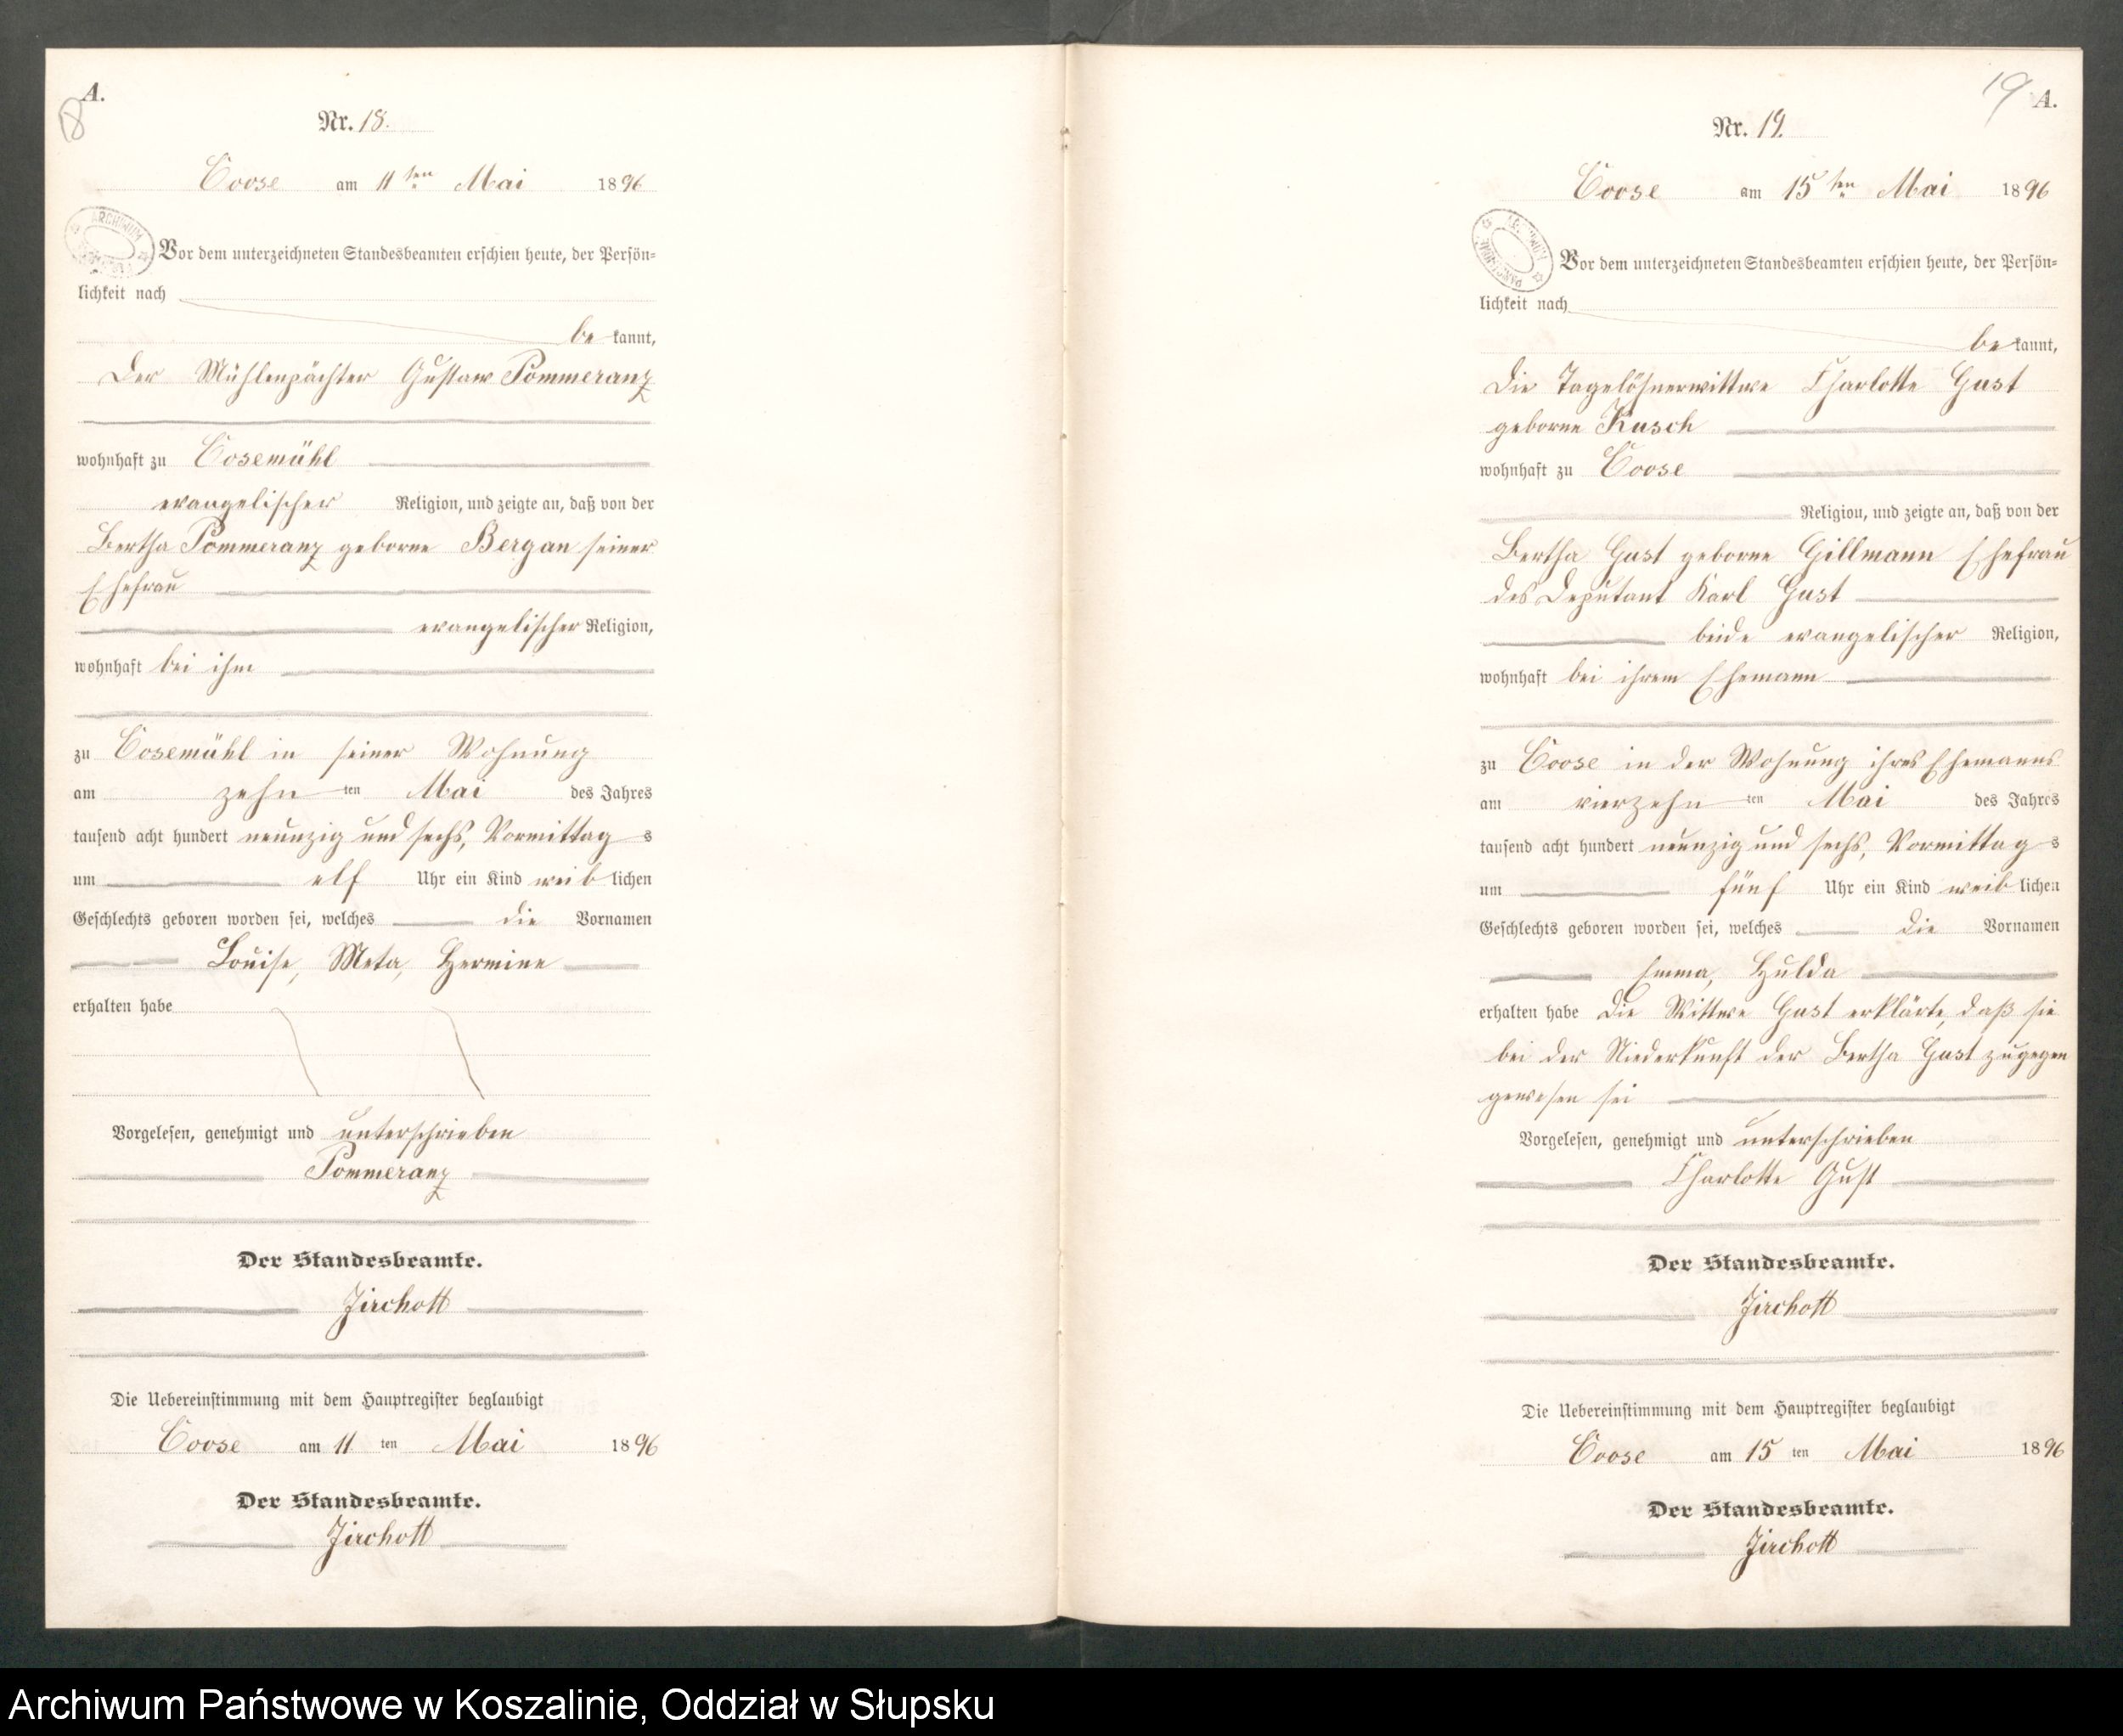 A.
18
Nr. 18.
Coose am 11ten Mai 1896
Vor dem unterzeichneten Standesbeamten erschien heute, der Persön-
lichkeit nach
be kannt,
Der Mühlenpächter Gustav Pommeranz
wohnhaft zu Cosemühl
evangelischer Religion, und zeigte an, daß von der
Bertha Pommeranz geborne Bergan seiner
Ehefrau
evangelischer Religion,
wohnhaft bei ihm
zu Cosemühl in seiner Wohnung
am zehn ten Mai des Jahres
tausend acht hundert neunzig und sechs, Vormittag s
um elf Uhr ein Kind weib lichen
Geschlechts geboren worden sei, welches die Vornamen
Louise, Meta, Hermine
erhalten habe
Vorgelesen, genehmigt und unterschrieben
Pommeranz
Der Standesbeamte.
Zirchott
Die Uebereinstimmung mit dem Hauptregister beglaubigt
Coose am 11 ten Mai 1896
Der Standesbeamte.
Zirchott
19 A.
Nr. 19.
Coose am 15ten Mai 1896
Vor dem unterzeichneten Standesbeamten erschien heute, der Persön-
lichkeit nach
be kannt,
Die Tagelöhnerwittwe Charlotte Gust
geborne Kusch
wohnhaft zu Coose
Religion, und zeigte an, daß von der
Bertha Gust geborne Gillmann Ehefrau
des Deputant Karl Gust
beide evangelischer Religion,
wohnhaft bei ihrem Ehemann
zu Coose in der Wohnung ihres Ehemanns
am vierzehn ten Mai des Jahres
tausend acht hundert neunzig und sechs, Vormittag s
um fünf Uhr ein Kind weib lichen
Geschlechts geboren worden sei, welches die Vornamen
Emma, Hulda
erhalten habe Die Wittwe Gust erklärte, daß sie
bei der Niederkunft der Bertha Gust zugegen
gewesen sei
Vorgelesen, genehmigt und unterschrieben
Charlotte Gust
Der Standesbeamte.
Zirchott
Die Uebereinstimmung mit dem Hauptregister beglaubigt
Coose am 15 ten Mai 1896
Der Standesbeamte.
Zirchott
Archiwum Państwowe w Koszalinie, Oddział w Słupsku